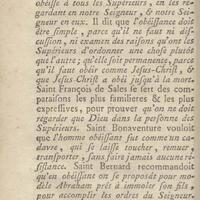 obéisse à tous les Supérieurs, en les re-
gardant en notre Seigneur, & notre Sei-
gneur en eux. Il dit que l'obéissance doit
être simple, parce qu'il ne faut ni dis-
cussion, ni examen des raisons qu'ont les
Supérieurs d'ordonner une chose plutôt
que l'autre; qu'elle soit permanente, parce
qu'il faut obéir comme Jesus-Christ, &
que Jesus-Christ a obéi jusqu'à la mort.
Saint François de Sales se sert des com-
paraisons les plus familieres & les plus
expressives, pour prouver qu'on ne doit
regarder que Dieu dans la personne des
Supérieurs. Saint Bonaventure vouloit
que l'homme obéissant fut comme un ca-
davre, qui se laisse toucher, remuer,
transporter, sans faire jamais aucune ré-
sistance. Saint Bernard recommandoit
qu'un obéissant on se proposât pour mo-
dèle Abraham prés à immoler son fils,
pour accomplir les ordres du Seigneur.